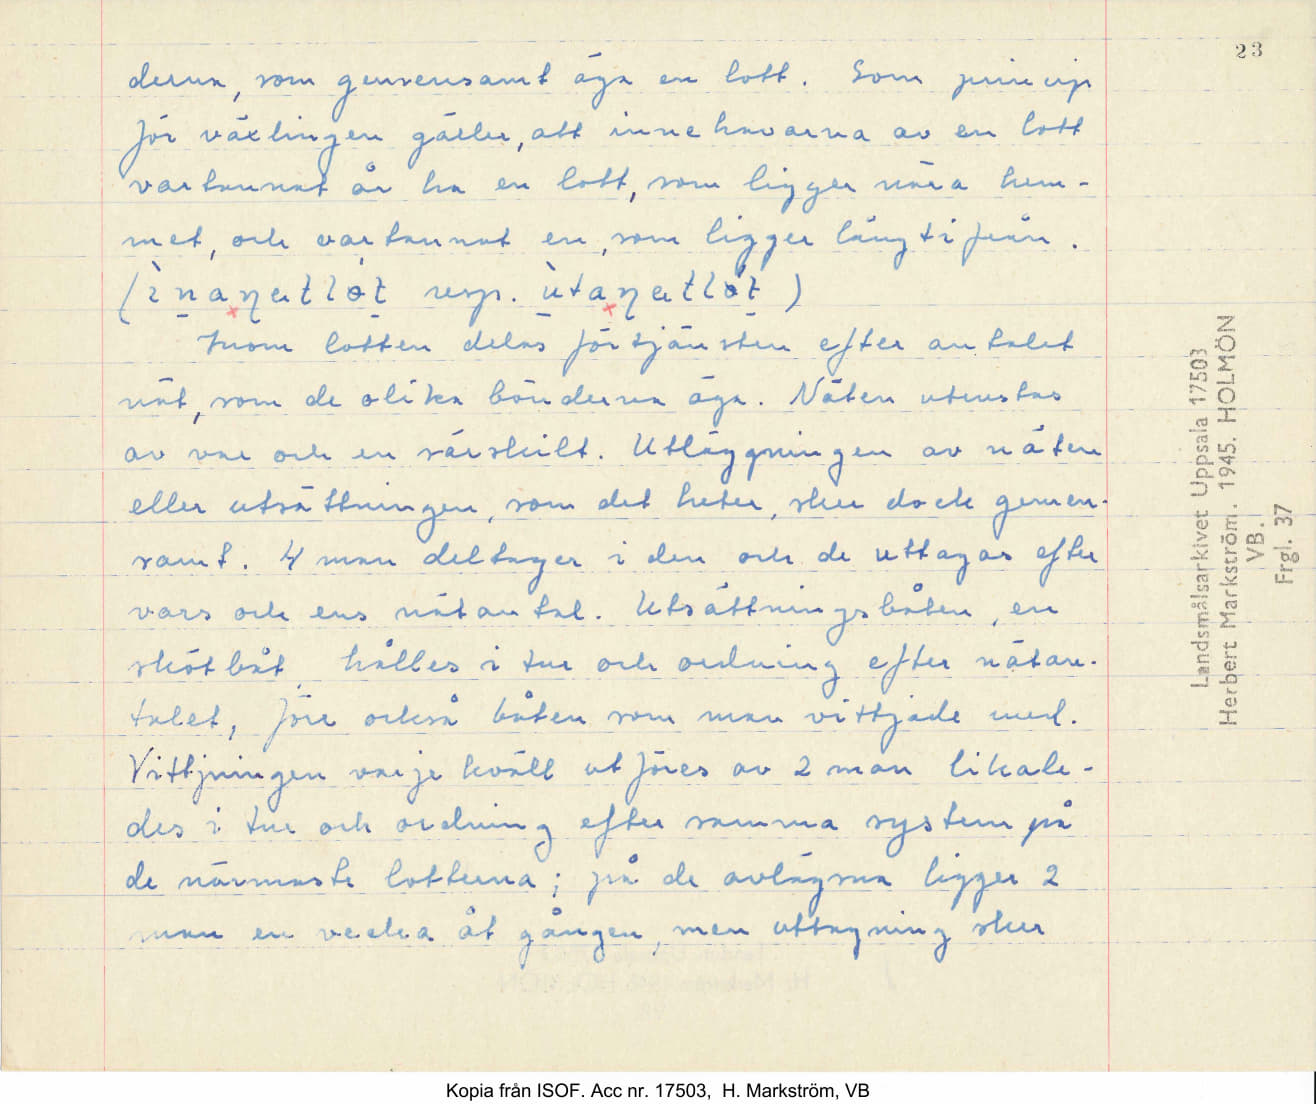 23
derna, som gemensamt äga en lott. Som princip
för växlingen gäller, att innehavarna av en lott
vartannat år ha en lott, som ligger nära hem-
met, och vartannat en, som ligger långt ifrån.
resp.
Inom lotten delas förtjänsten efter antalet
nät, som de olika bönderna äga. Näten utrustas
av var och en särskilt. Utläggningen av näten
eller utsättningen, som det heter, sker dock gemen-
samt. 4 man deltager i den och de uttagas efter
vars och ens nätantal. Utsättningsbåten, en
skötbåt, hålles i tur och ordning efter nätan-
talet, före också båten som man vittjade med.
Vittjningen varje kväll utföres av 2 man likale-
des i tur och ordning efter samma system på
de närmaste lotterna; på de avlägsna ligger 2
man en vecka åt gången, men uttagning sker
Landsmålsarkivet Uppsala 17503
Herbert Markström. 1945. HOLMÖN
VB.
Frgl. 37
Kopia från ISOF. Acc nr. 17503, H. Markström, VB